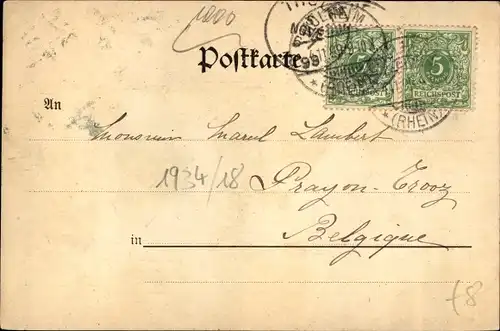 1000
Postkarte
5
5
REICHSPOST
REICHSPOST
(RHEIN)
An
Monsieur Marcel Lambert
1934/18
Prayon-Trooz
in Belgique